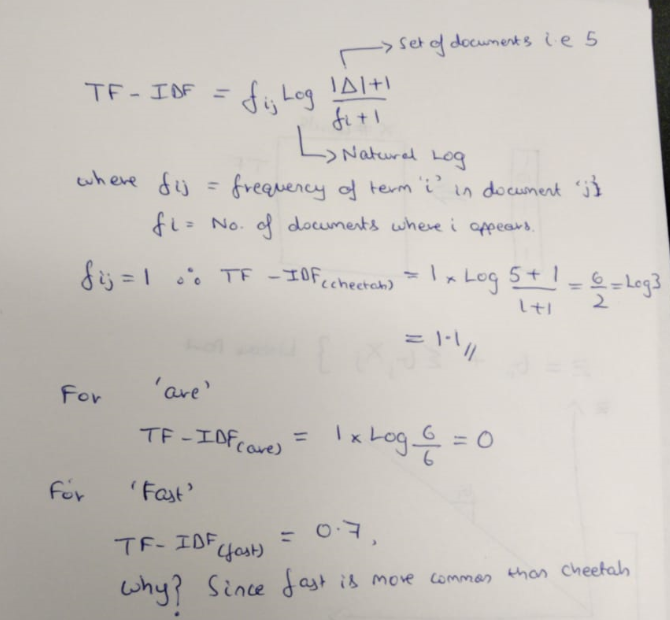 Set of documents i.e 5
TF - IDF = fij Log |Δ|+1 / fi+1
Natural Log
where fij = frequency of term 'i' in document 'j'
fi = No. of documents where i appears.
fij = 1 ∴ TF - IDF(cheetah) = 1 x Log 5+1 / 1+1 = 6/2 = Log3
= 1.1//
For 'are'
TF - IDF(are) = 1 x Log 6/6 = 0
For 'Fast'
TF - IDF(fast) = 0.7,
Why? Since fast is more common than cheetah